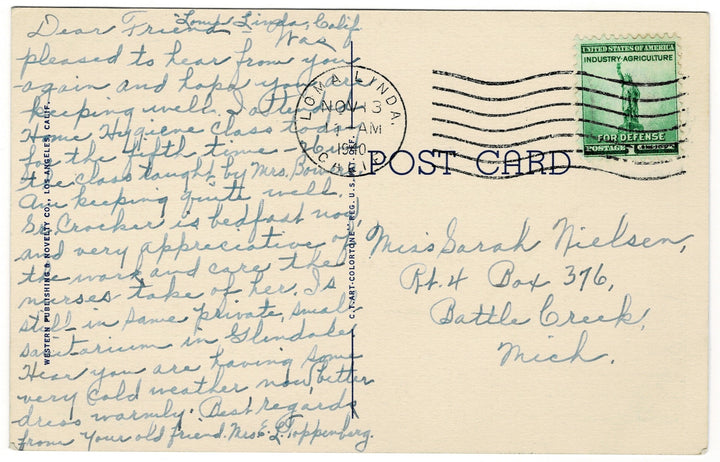 Loma Linda, Calif
Dear Friend - Was I
pleased to hear from you
again and hope you are
keeping well. I attended
Home Hygiene class today
for the fifth time -
the class taught by Mrs. Bower
Am keeping quite well.
Sr. Crocker is bedfast now
and very appreciative of
the work and care the
nurses take of her, Is
still in same private, small
sanitorium in Glendale
Hear you are having some
very cold weather now, better
dress warmly. Best regards
from your old friend. Mrs E. L. Toppenberg.
WESTERN PUBLISHING & NOVELTY CO., LOS ANGELES, CALIF.
C. T. ART-COLORTONE REG. U.S. PAT. OFF.
LOMA LINDA.
NOV 13
11 - AM
1940
CALIF.
UNITED STATES OF AMERICA
INDUSTRY-AGRICULTURE
FOR DEFENSE
POSTAGE 1¢
POST CARD
Miss Sarah Nielsen,
Rt. 4 Box 376,
Battle Creek,
Mich.